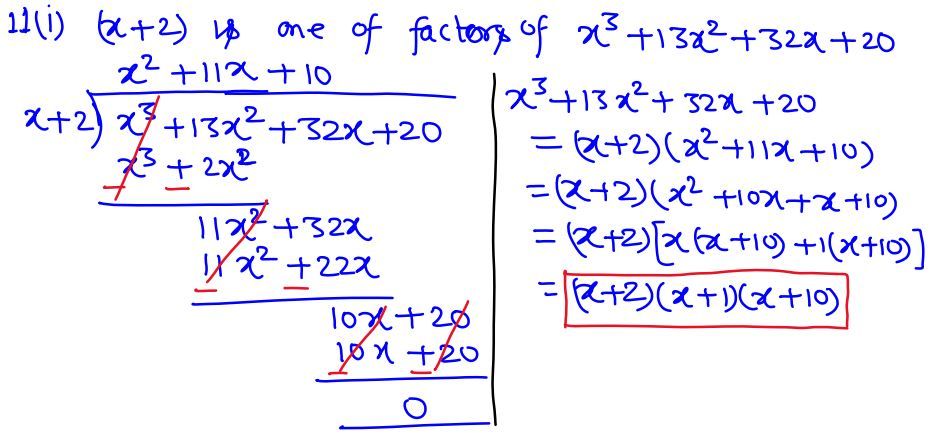 11(i) (x+2) is one of factors of x³+13x²+32x+20
x² +11x +10
x+2) x³ +13x² +32x+20
x³ + 2x²
11x² +32x
11x² +22x
10x +20
10x +20
0
x³+13x²+32x+20
= (x+2)(x²+11x+10)
= (x+2)(x² +10x+x+10)
= (x+2)[x(x+10) +1(x+10)]
= (x+2)(x+1)(x+10)